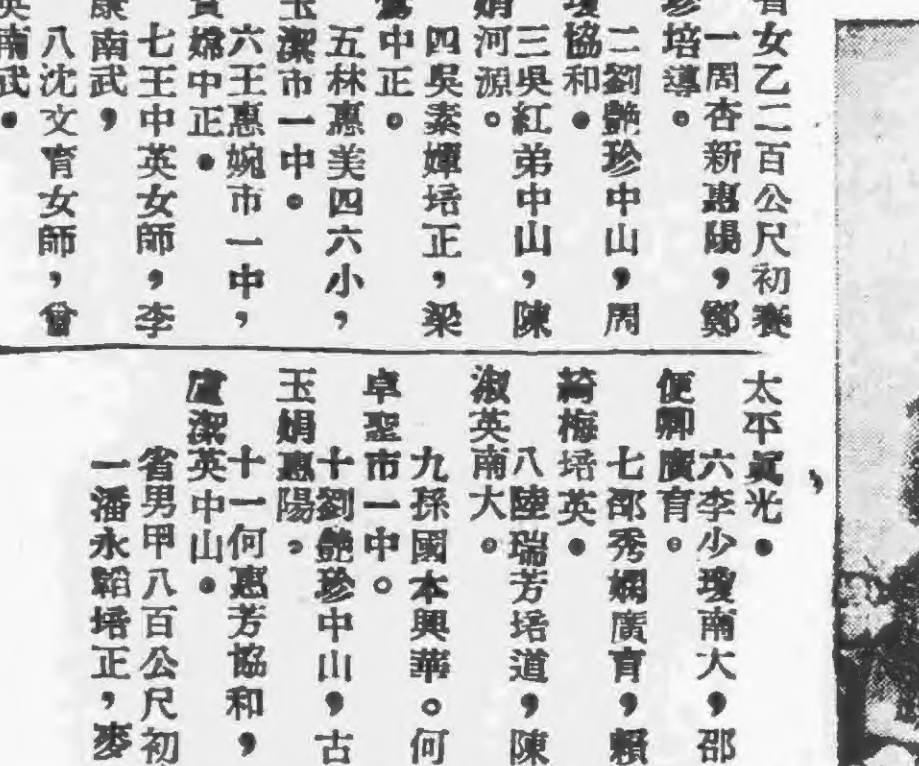 省女乙二百公尺初賽
一周杏新惠陽，鄭
珍培導。
二劉艷珍中山，周
瓊協和。
三吳紅弟中山，陳
娟河源。
四吳素嬋培正，梁
中正。
五林惠美四六小，
玉潔市一中。
六王惠婉市一中，
嫦中正。
七王中英女師，李
康南武，
八沈文育女師，曾
英南武。
太平真光。
六李少瓊南大，邵
便卿廣育。
七邵秀嫻廣育，賴
綺梅培英。
八陸瑞芳培道，陳
淑英南大。
九孫國本興華。何
卓聖市一中。
十劉艷珍中山，古
玉娟惠陽。
十一何惠芳協和，
盧潔英中山。
省男甲八百公尺初
一潘永韜培正，麥